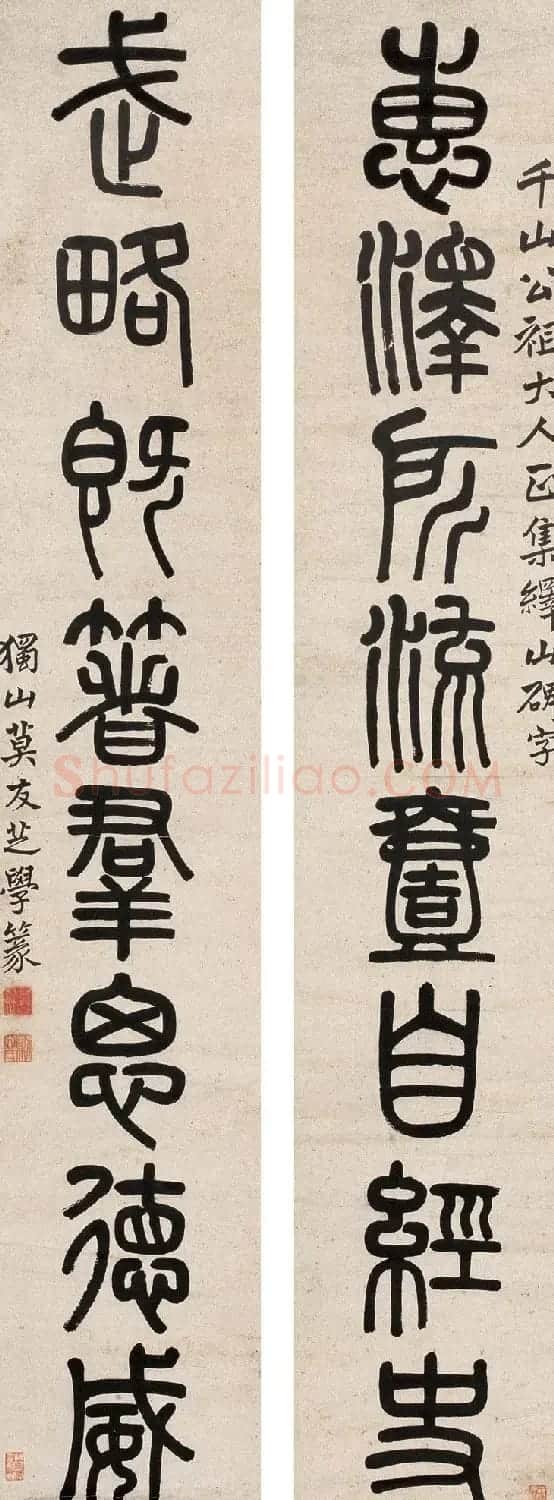 千山公祖大人正集繹山碑字
惠澤所流壹自經史
武略既箸羣思德威
獨山莫友芝學篆
Shufaziliao.COM